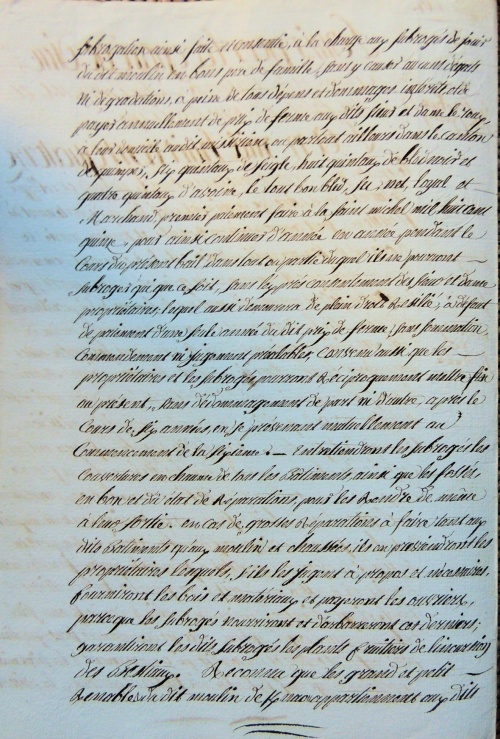 subrogation ainsi faite et consentie, à la charge aux subrogés de jouir
du dit moulin en bons père de famille, sans y causer aucuns dégats
ni dégradations, a peine de tous dépens et dommages intérêts et de
payer annuellement de prix de ferme aux dits sieur et dame
a leur domicile au dit ou partout ailleurs dans le canton
de quimper, six quintaux de seigle, huit quintaux de bled noir et
quatre quintaux d'avoine, le tout bon bled, sec, net, loyal et
Marchand, premier paiement faire à la saint michel mil huit cent
quinze, pour ainsi continuer d'année en année pendant le
Cours du présent bail dans tout ou partie duquel ils ne pourront
subroger qui que ce soit, sans l'exprès consentement des sieur et dame
propriétaires, lequel aussi demeurera de plein droit Resilié, a défaut
de paiement d'une seule année du dit prix de ferme, sans sommation,
Commandement ni jugement préalables. Convenu aussi que les
propriétaires et les subrogés pourront Réciproquement mettre fin
au présent, sans dédommagement de part ni d'autre, après le
Cours de six années, en se prévenant mutuellement au
Commencement de la sixième. Entretiendront les subrogés les
Couvertures en chaume de tous les Batiments, ainsi que les
en bon et dû état de Réparations, pour les Rendre de même
à leur sortie. en cas de grosses Réparations à faire tant aux
dits Batiments qu'aux moulin et chaussées, ils en préviendront les
propriétaires lesquels, s'ils les jugent à propos et nécessaires,
fourniront les bois et matériaux et payeront les ouvriers,
parceque les subrogés nourriront et ces derniers;
garantiront les dits subrogés les plants fruitiers de l'incursion
des Bestiaux. Reconnu que les grand et petit
Renables du dit moulin de appartiennent aux dits